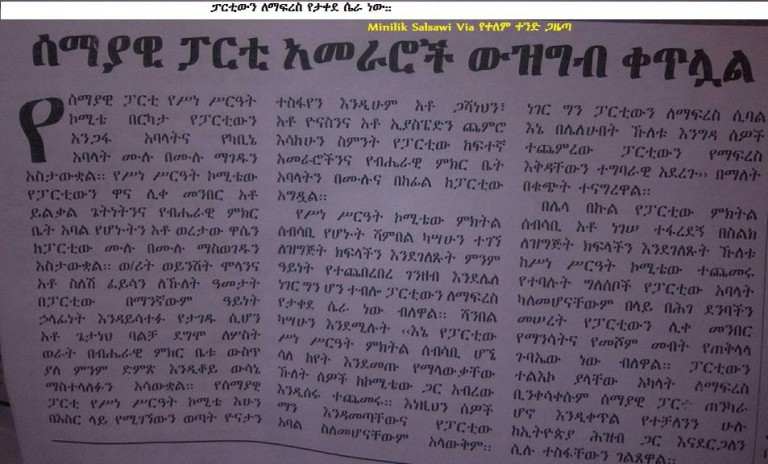 ፓርቲውን ለማፍረስ የታቀደ ሴራ ነው።
Minilik Salsawi Via የተለም ቀንድ ጋዜጣ
ሰማያዊ ፓርቲ አመራሮች ውዝግብ ቀጥሏል
የሰማያዊ ፓርቲ የሥነ ሥርዓት
ኮሚቴ በርካታ የፓርቲውን
አንጋፋ አባላትና የካቢኔ
አባላት ሙሉ በሙሉ ማገዱን
አስታውቋል። የሥነ ሥርዓት ኮሚቴው
የፓርቲውን ዋና ሊቀ መንበር አቶ
ይልቃል ጌትነትንና የብሔራዊ ምክር
ቤት አባል የሆኑትን አቶ ወረታው ዋሴን
ከፓርቲው ሙሉ በሙሉ ማስወገዱን
አስታውቋል። ወ/ሪት ወይንሸት ሞላንና
አቶ ስለሺ ፈይሳን ለኹለት ዓመታት
በፓርቲው በማንኛውም ዓይነት
ኃላፊነት እንዳይሳተፉ የታገዱ ሲሆን
አቶ ጌታነህ ባልቻ ደግሞ ለሦስት
ወራት በብሔራዊ ምክር ቤቱ ውስጥ
ያለ ምንም ድምጽ እንዲቆይ ውሳኔ
ማስተላለፉን አሳውቋል። የሰማያዊ
ፓርቲ የሥነ ሥርዓት ኮሚቴ አሁን
በእስር ላይ የሚገኘውን ወጣት ዮናታን
ተስፋየን እንዲሁም አቶ ጋሻነህን፣
አቶ ዮናስንና አቶ ኢያስፔድን ጨምሮ
እሳከሁን ስምንት የፓርቲው ከፍተኛ
አመራሮችንና የብሔራዊ ምክር ቤት
አባላትን በሙሉና በከፊል ከፓርቲው
አግዷል።
የሥነ ሥርዓት ኮሚቴው ምክትል
ሰብሳቢ የሆኑት ሻምበል ካሣሁን ተገኘ
ለዝግጅት ክፍላችን እንደገለጡት ምንም
ዓይነት የተጨበረበረ ገንዘብ እንደሌለ
ነገር ግን ሆን ተብሎ ፓርቲውን ለማፍረስ
የታቀደ ሴራ ነው ብለዋል። ሻንበል
ካሣሁን እንደሚሉት ‹‹እኔ የፓርቲው
ሥነ ሥርዓት ምክትል ሰብሳቢ ሆኜ
ሳለ ከየት እንደመጡ የማላውቃቸው
ኹለት ሰዎች ከኮሚቴው ጋር አብረው
እንዲሰሩ ተጨመሩ። እነዚህን ሰዎች
ማን እንዳመጣቸውና የፓርቲው
አባል ስለመሆናቸውም አላውቅም።
ነገር ግን ፓርቲውን ለማፍረስ ሲባል
እኔ በሌለሁበት ኹለቱ እንግዳ ሰዎች
ተጨምረው ፓርቲውን የማፍረስ
እቅዳቸውን ተግባራዊ አደረጉ›› በማለት
በቁጭት ተናግረዋል።
በሌላ በኩል የፓርቲው ምክትል
ሰብሳቢ አቶ ነገሠ ተፋረደኝ በስልክ
ለዝግጅት ክፍላችን እንደገለጹት ኹለቱ
ከሥነ ሥርዓት ኮሚቴው ተጨመሩ
የተባሉት ግለሰቦች የፓርቲው አባላት
ካለመሆናቸውም በላይ በሕገ ደንባችን
መሠረት የፓርቲውን ሊቀ መንበር
የማንሳትና የመሾም መብት የጠቅላላ
ጉባኤው ነው ብለዋል። ፓርቲውን
ተልእኮ ያላቸው አካላት ለማፍረስ
ቢንቀሳቀሱም ሰማያዊ ፓርቲ ጠንካራ
ሆኖ እንዲቀጥል የተቻለንን ሁሉ
ከኢትዮጵያ ሕዝብ ጋር እናደርጋለን
ሲሉ ተስፋቸውን ገልጸዋል።